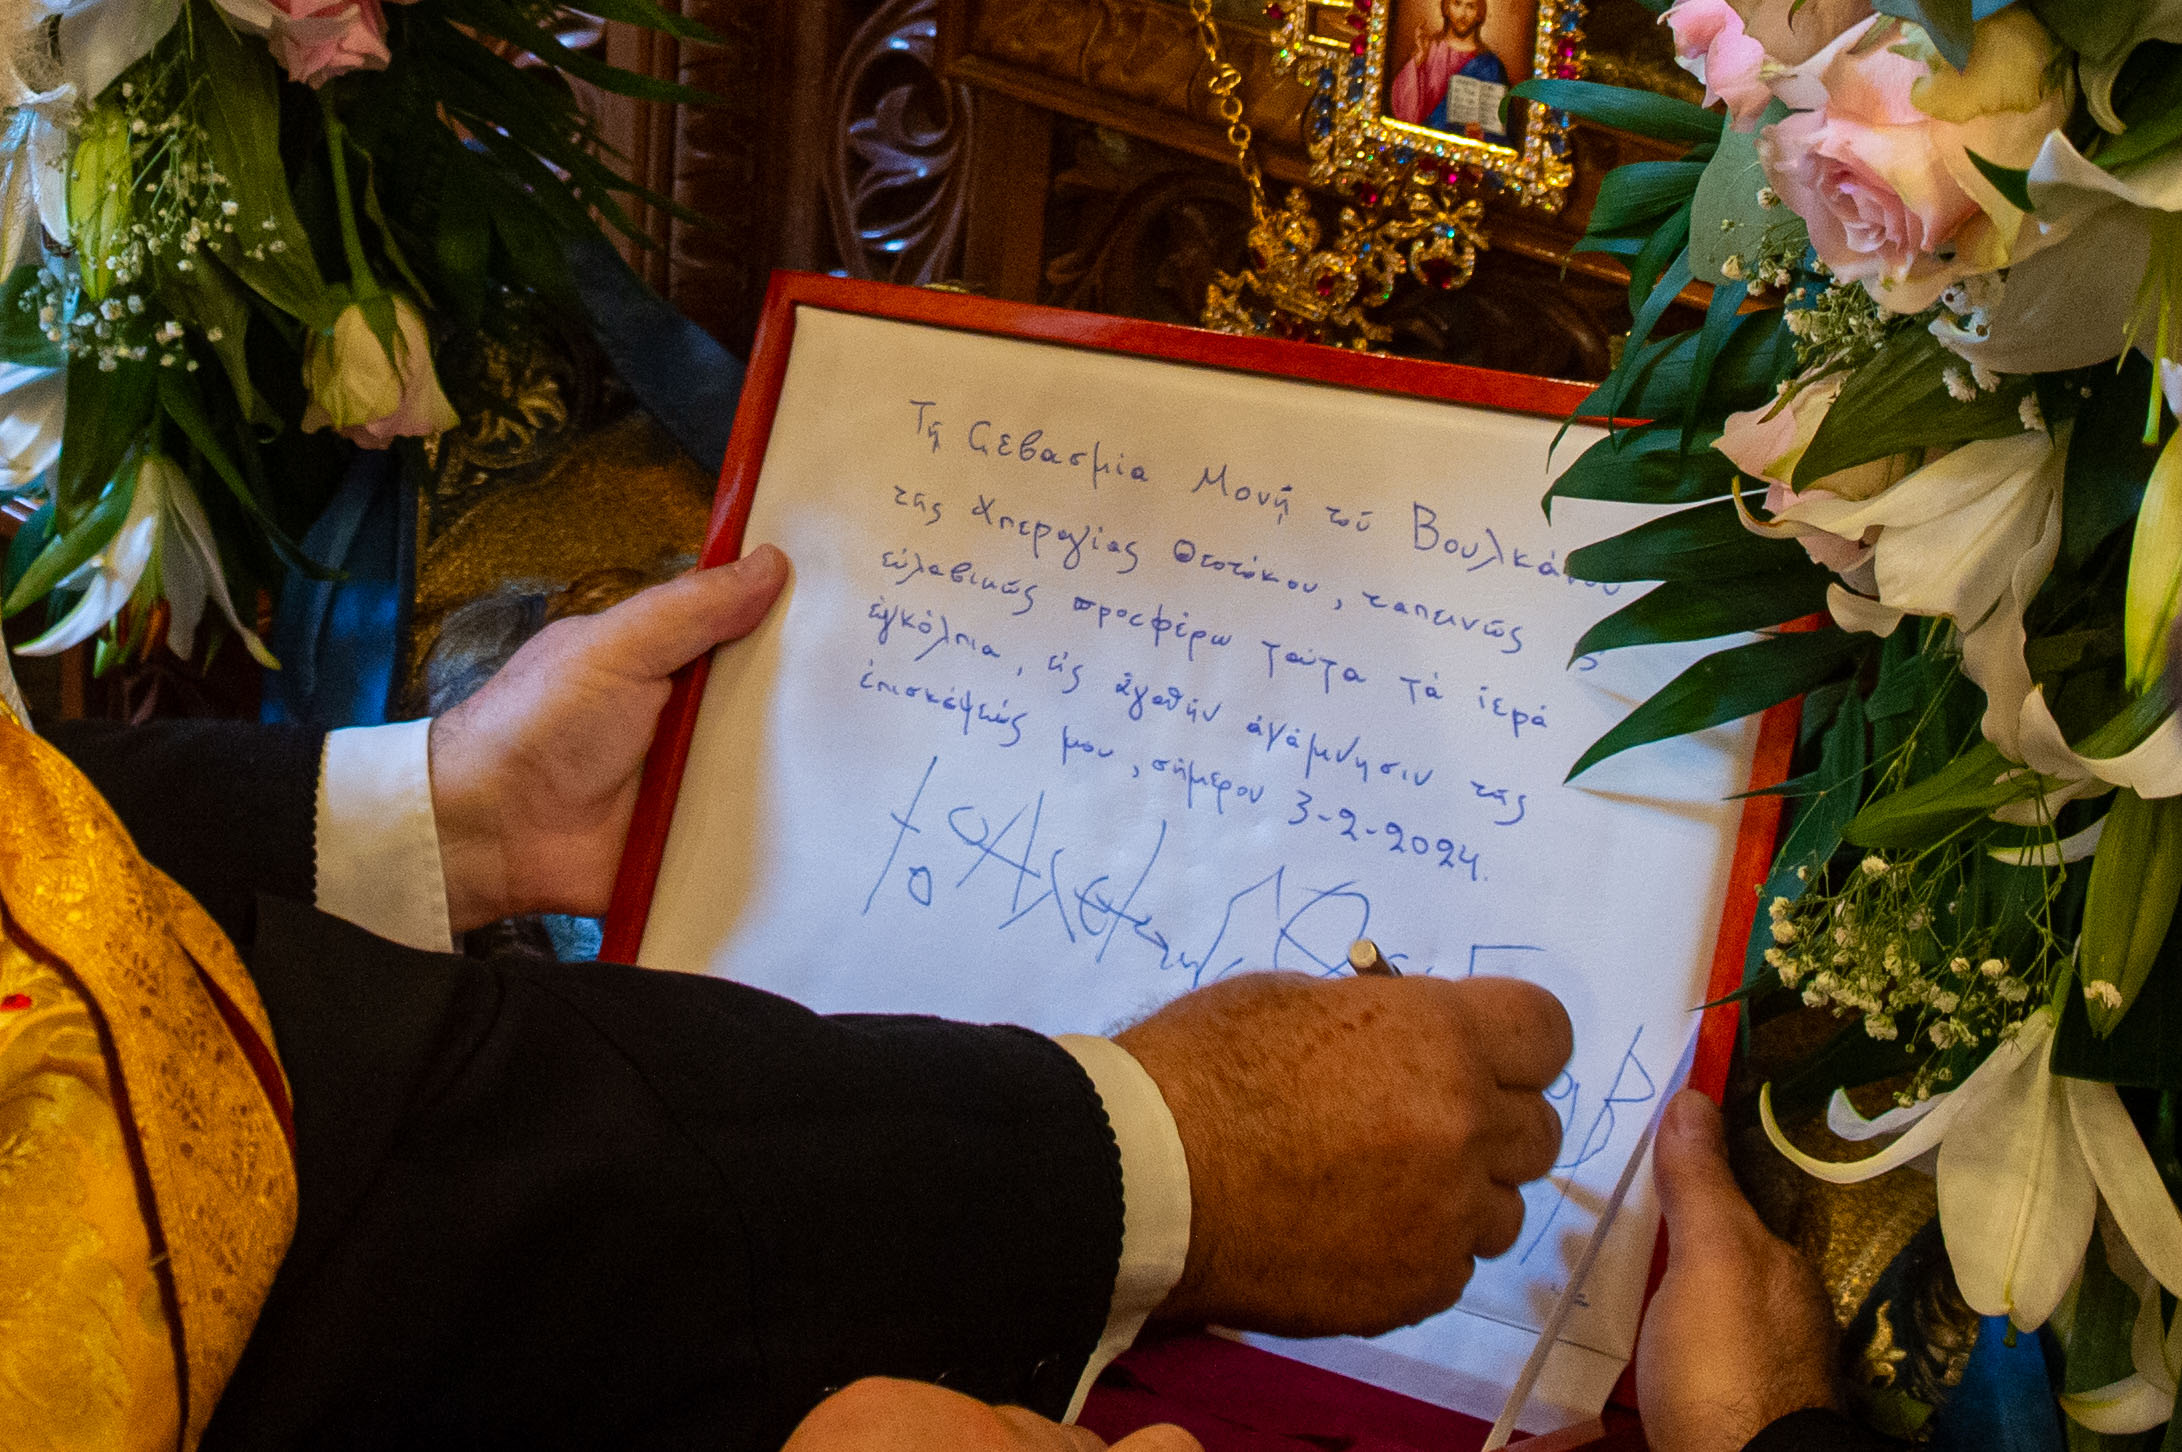 Τῇ Σεβασμίᾳ Μονῇ τοῦ Βουλκάνου
τῆς Ὑπεραγίας Θεοτόκου, ταπεινῶς
εὐλαβικῶς προσφέρω ταῦτα τὰ ἱερὰ
ἐγκόλπια, εἰς ἀγαθὴν ἀνάμνησιν τῆς
ἐπισκέψεώς μου, σήμερον 3-2-2024.